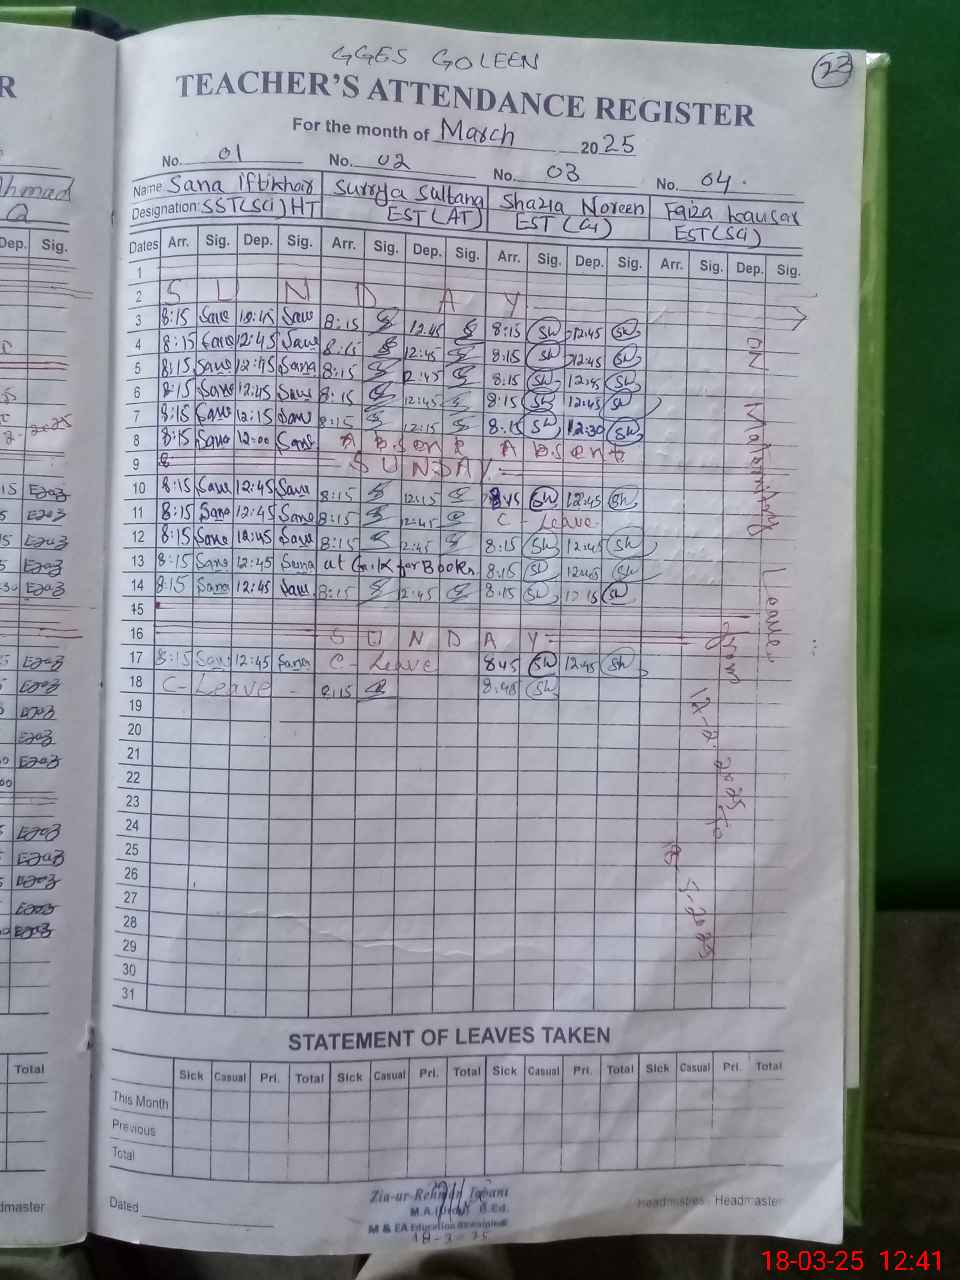 GGES GOLEEN
23
TEACHER'S ATTENDANCE REGISTER
For the month of March 2025
No. 01 No. 02 No. 03 No. 04.
Name Sana Iftikhar Surrya Sultana Shazia Noreen Faiza Kausar
Designation: SST(Sci) HT EST(AT) EST(G) EST(Sci)
Dates Arr. Sig. Dep. Sig. Arr. Sig. Dep. Sig. Arr. Sig. Dep. Sig. Arr. Sig. Dep. Sig.
1
2 S U N D A Y
3 8:15 Sana 12:45 Sana 8:15 12:45 8:15 SN 12:45 SN
4 8:15 Sana 12:45 Sana 8:15 12:45 8:15 SN 12:45 SN
5 8:15 Sana 12:45 Sana 8:15 2:45 8:15 SN 12:45 SN
6 8:15 Sana 12:45 Sana 8:15 12:45 8:15 SN 12:45 SN
7 8:15 Sana 12:15 Sana 8:15 12:15 8:15 SN 12:30 SN
8 8:15 Sana 12:00 Sana Absent Absent
9 8: SUNDAY
10 8:15 Sana 12:45 Sana 8:15 12:15 8:45 SN 12:45 SN
11 8:15 Sana 12:45 Sana 8:15 12:45 C - Leave
12 8:15 Sana 12:45 Sana 8:15 2:45 8:15 SN 12:45 SN
13 8:15 Sana 12:45 Sana at for Books 8:15 SN 12:45 SN
14 8:15 Sana 12:45 Sana 8:15 2:45 8:15 SN 12:15 SN
15
16 S U N D A Y
17 8:15 Sana 12:45 Sana C - Leave 8:45 SN 12:45 SN
18 C - Leave - 8:15 8:45 SN
19
20
21
22
23
24
25
26
27
28
29
30
31
ON Maternity Leave
from 18-2-2025 to
18-5-2025
STATEMENT OF LEAVES TAKEN
Sick Casual Pri. Total Sick Casual Pri. Total Sick Casual Pri. Total Sick Casual Pri. Total
This Month
Previous
Total
Dated
Zia-ur-Rehman
M.A. (Urdu) B.Ed.
M & EA Education
18-3-25
Headmistres / Headmaster
R
Ahmad
Dep. Sig.
2025
Total
dmaster
18-03-25 12:41